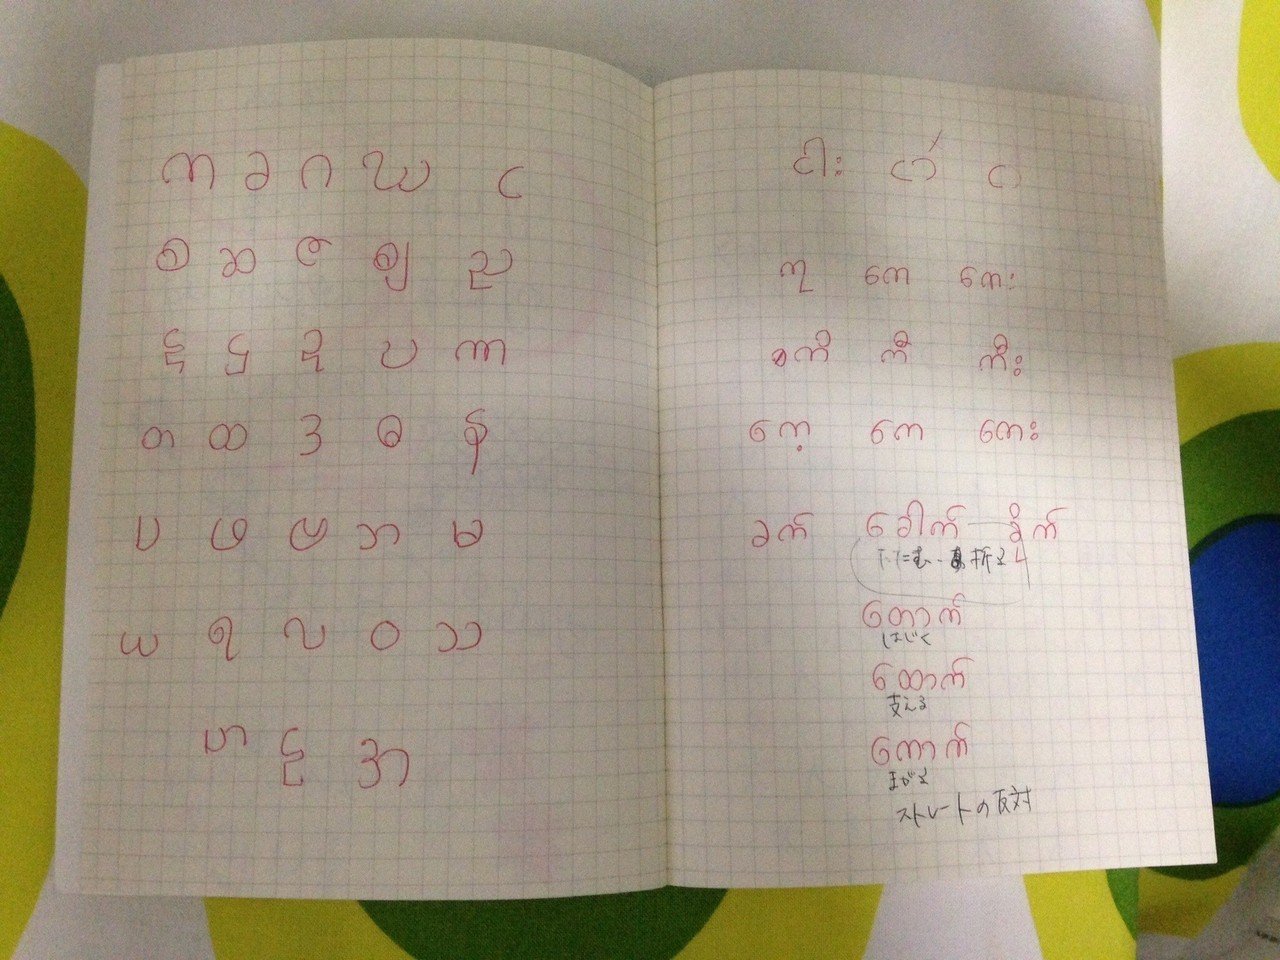 က ခ ဂ ဃ င
စ ဆ ဇ ဈ ည
ဋ ဌ ဍ ဎ ဏ
တ ထ ဒ ဓ န
ပ ဖ ဗ ဘ မ
ယ ရ လ ဝ သ
ဟ ဠ အ
ငါး ငှါ် ငါ
ကူ ကေ ကေး
စကိ ကီ ကီး
ကေ့ ကေ ကေး
ခက် ခေါက် ခိုက်
たたむ・折る
တောက်
はじく
ထောက်
支える
ကောက်
まがる
ストレートの反対